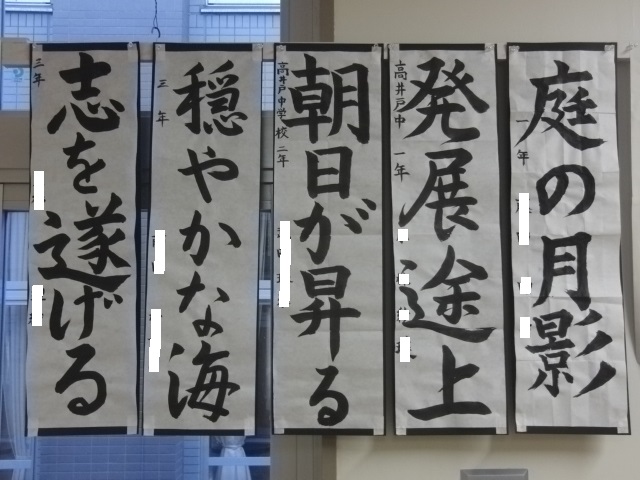 庭の月影
一年
発展途上
高井戸中 一年
朝日が昇る
高井戸中学校 二年
穏やかな海
三年
志を遂げる
三年